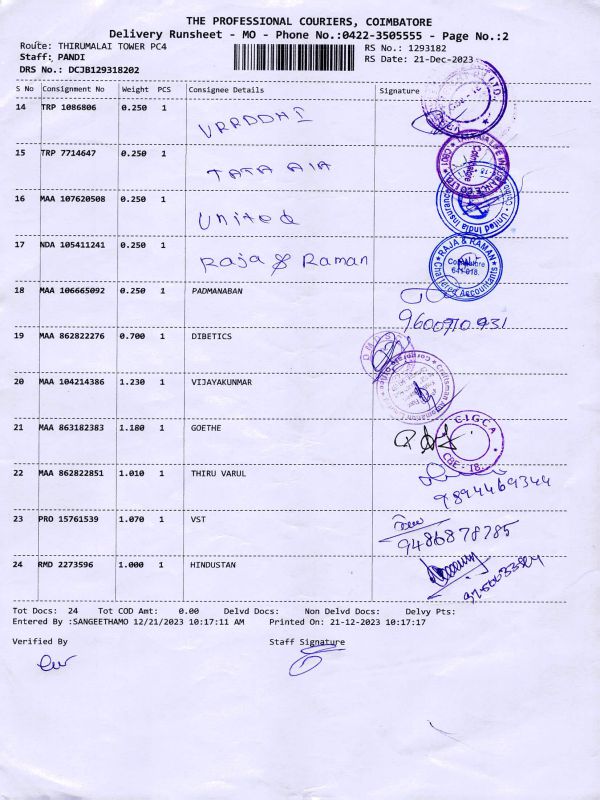 THE PROFESSIONAL COURIERS, COIMBATORE
Delivery Runsheet - MO - Phone No.:0422-3505555 - Page No.:2
Route: THIRUMALAI TOWER PC4 RS No.: 1293182
Staff: PANDI RS Date: 21-Dec-2023
DRS No.: DCJB129318202
S No Consignment No Weight PCS Consignee Details Signature
14 TRP 1086806 0.250 1
VRRDDHI
15 TRP 7714647 0.250 1
TATA AIA
16 MAA 107620508 0.250 1
United
17 NDA 105411241 0.250 1
Raja & Raman
RAJA & RAMAN
Coimbatore
641 018.
Chartered Accountants
18 MAA 106665092 0.250 1 PADMANABAN
9600910931
19 MAA 862822276 0.700 1 DIBETICS
20 MAA 104214386 1.230 1 VIJAYAKUNMAR
21 MAA 863182383 1.180 1 GOETHE
CIGCA
CBE - 18.
22 MAA 862822851 1.010 1 THIRU VARUL
9894469344
23 PRO 15761539 1.070 1 VST
9486878785
24 RMD 2273596 1.000 1 HINDUSTAN
Tot Docs: 24 Tot COD Amt: 0.00 Delvd Docs: Non Delvd Docs: Delvy Pts:
Entered By :SANGEETHAMO 12/21/2023 10:17:11 AM Printed On: 21-12-2023 10:17:17
Verified By Staff Signature